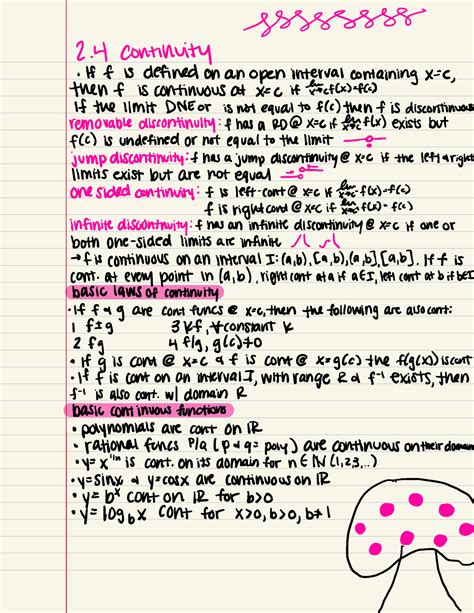 2.4 continuity
• If f is defined on an open interval containing x=c,
then f is continuous at x=c if lim x→c f(x)=f(c)
If the limit DNE or is not equal to f(c) then f is discontinuous
removable discontinuity: f has a RD @ x=c if lim x→c f(x) exists but
f(c) is undefined or not equal to the limit
jump discontinuity: f has a jump discontinuity @ x=c if the left & right
limits exist but are not equal
one sided continuity: f is left-cont @ x=c if lim x→c⁻ f(x)=f(c)
f is right cont @ x=c if lim x→c⁺ f(x)=f(c)
infinite discontinuity: f has an infinite discontinuity @ x=c if one or
both one-sided limits are infinite
→ f is continuous on an interval I: (a,b), [a,b), (a,b], [a,b]. If f is
cont. at every point in (a,b), right cont at a if a∈I, left cont at b if b∈I
basic laws of continuity
• If f & g are cont funcs @ x=c, then the following are also cont:
1 f±g 3 kf, ∀constant k
2 fg 4 f/g, g(c)≠0
• If g is cont @ x=c & f is cont @ x=g(c) the f(g(x)) is cont
• If f is cont on an interval I, with range R & f⁻¹ exists, then
f⁻¹ is also cont. w/ domain R
basic continuous functions
• polynomials are cont on ℝ
• rational funcs P/q (p & q = poly) are continuous on their domain
• y=x^1/n is cont. on its domain for n∈ℕ (1,2,3,..)
• y=sinx & y=cosx are continuous on ℝ
• y=b^x cont on ℝ for b>0
• y=log_b x cont for x>0, b>0, b≠1